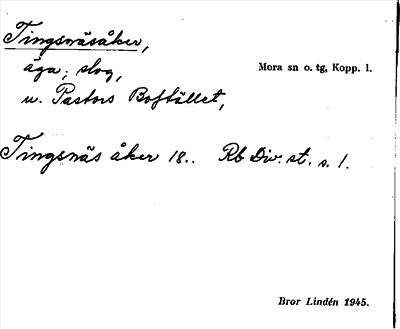 Tingsnäsåker,
äga; slog,
Mora sn o. tg, Kopp. l.
u. Pastors Bofället,
Tingsnäs åker 18.. Rb Div. st. s. 1.
Bror Lindén 1945.